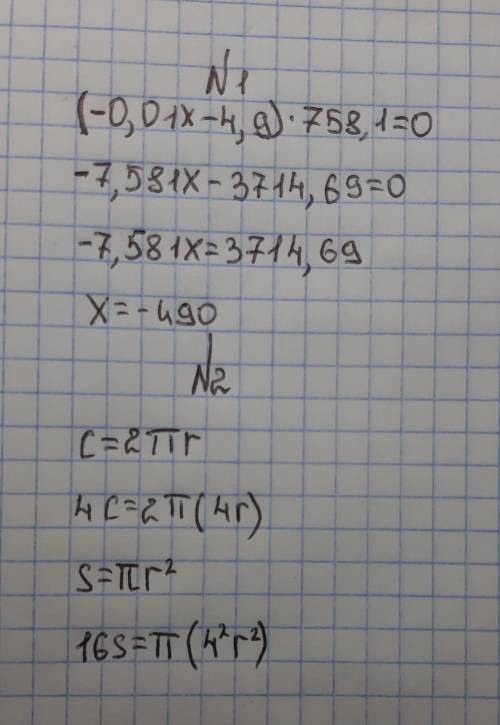 N1
(-0,01x-4,9)·758,1=0
-7,581x-3714,69=0
-7,581x=3714,69
x=-490
N2
C=2πr
4C=2π(4r)
S=πr²
16S=π(4²r²)